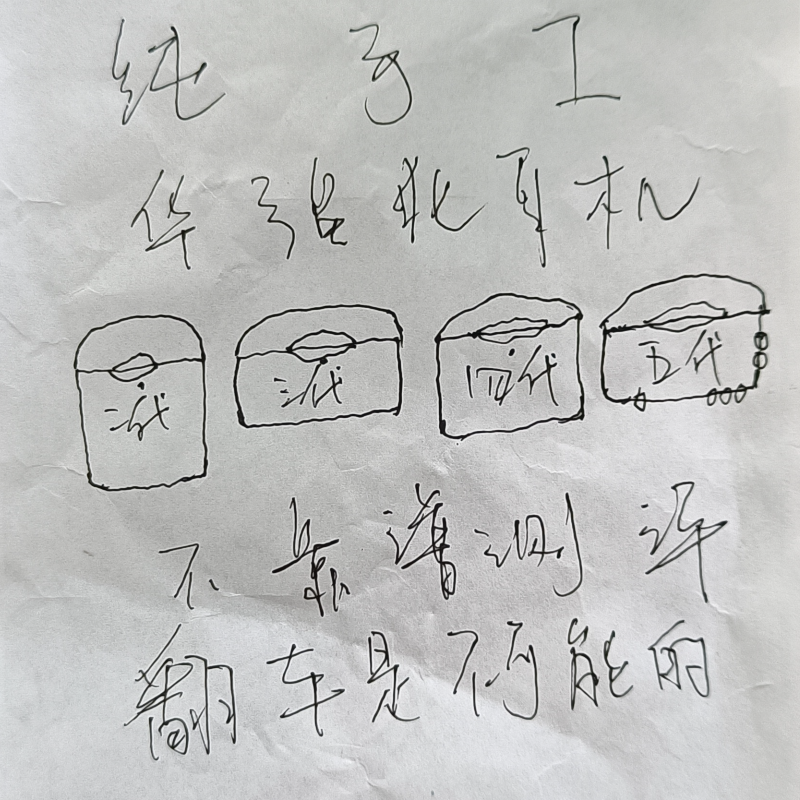 纯手工
华强北耳机
二代 三代 四代 五代
不靠谱测评
翻车是不可能的